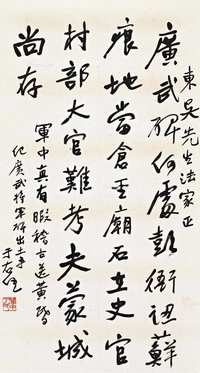 東吳先生法家正
廣武碑何處彭衙認蘚
痕地當倉聖廟石立史官
村部大官難考夫蒙城
尚存
軍中真有暇稽古送黃昏
紀廣武將軍碑出土事
于右任